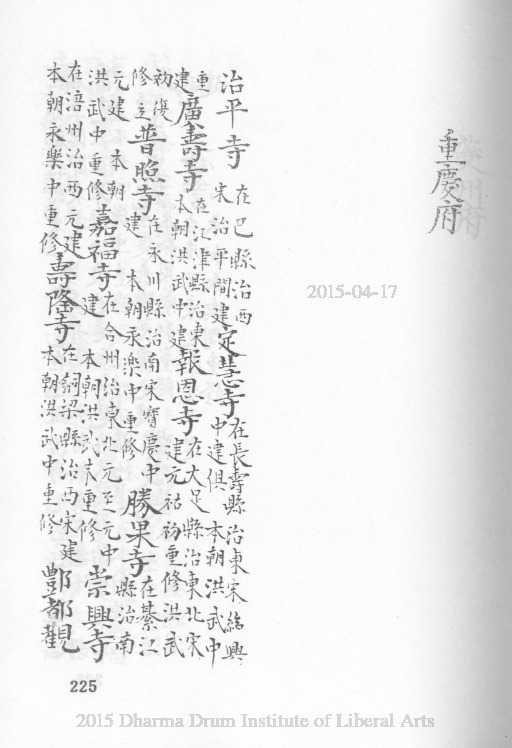 重慶府
治平寺在巴縣治西宋治平間建定慧寺在長壽縣治東宋紹興中建俱本朝洪武中
重建廣壽寺在江津縣治東本朝洪武中建報恩寺在大足縣治東北宋建元祐初重修洪武
初復修立普照寺在永川縣治南宋寶慶中建 本朝永樂中重修勝果寺在綦江縣治南
元建 本朝洪武中重修嘉福寺在合州治東北元至元中建 本朝洪武末重修崇興寺
在涪州治西元建本朝永樂中重修壽隆寺在銅梁縣治西宋建本朝洪武中重修酆都觀
2015-04-17
225
2015 Dharma Drum Institute of Liberal Arts